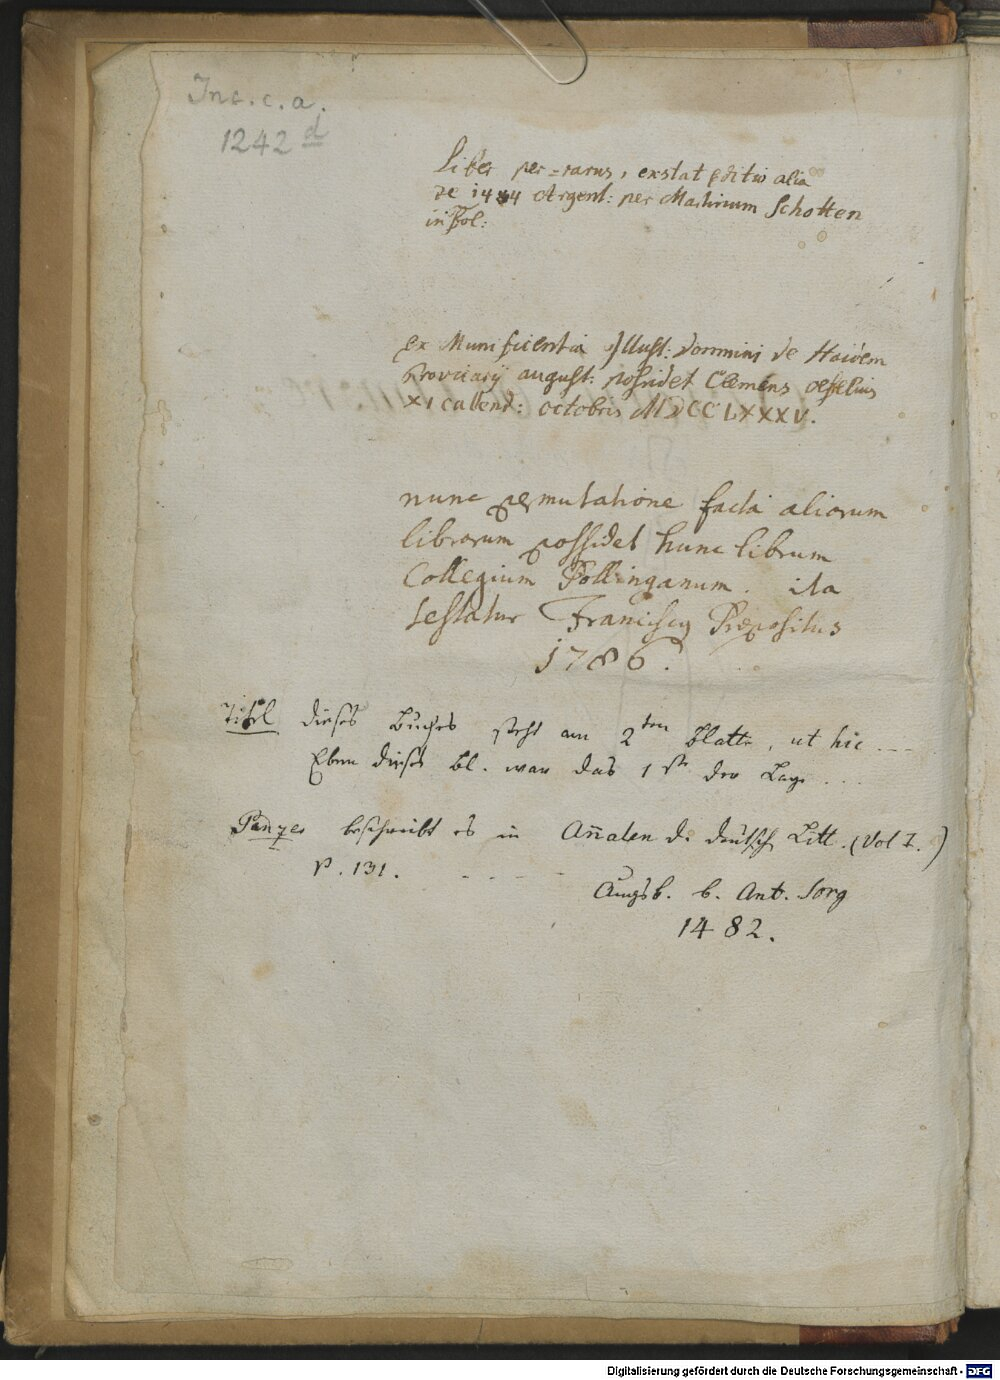 Inc. c. a.
1242 d
Liber per=rarus, exstat editio alia
de 14 4 Argent: per Martinum Schotten
in Fol:
ex Munificentia Illust: Domini de Haiden
august: possidet Clemens
XI calend: octobris MDCCLXXXV.
nunc permutatione facta aliorum
librorum possidet hunc librum
Collegium Pollinganum. ita
testatur Franciscus Præpositus
1786.
Titel dieses Buches steht am 2ten Blatte, ut hic ---
Eben dieses Bl. war das 1ste der Lage ...
Panzer beschreibt es in Añalen d. deutsch. Litt. (Vol I.)
P. 131. - - - -
Augsb. b. Ant. Sorg
1482.
Digitalisierung gefördert durch die Deutsche Forschungsgemeinschaft - DFG